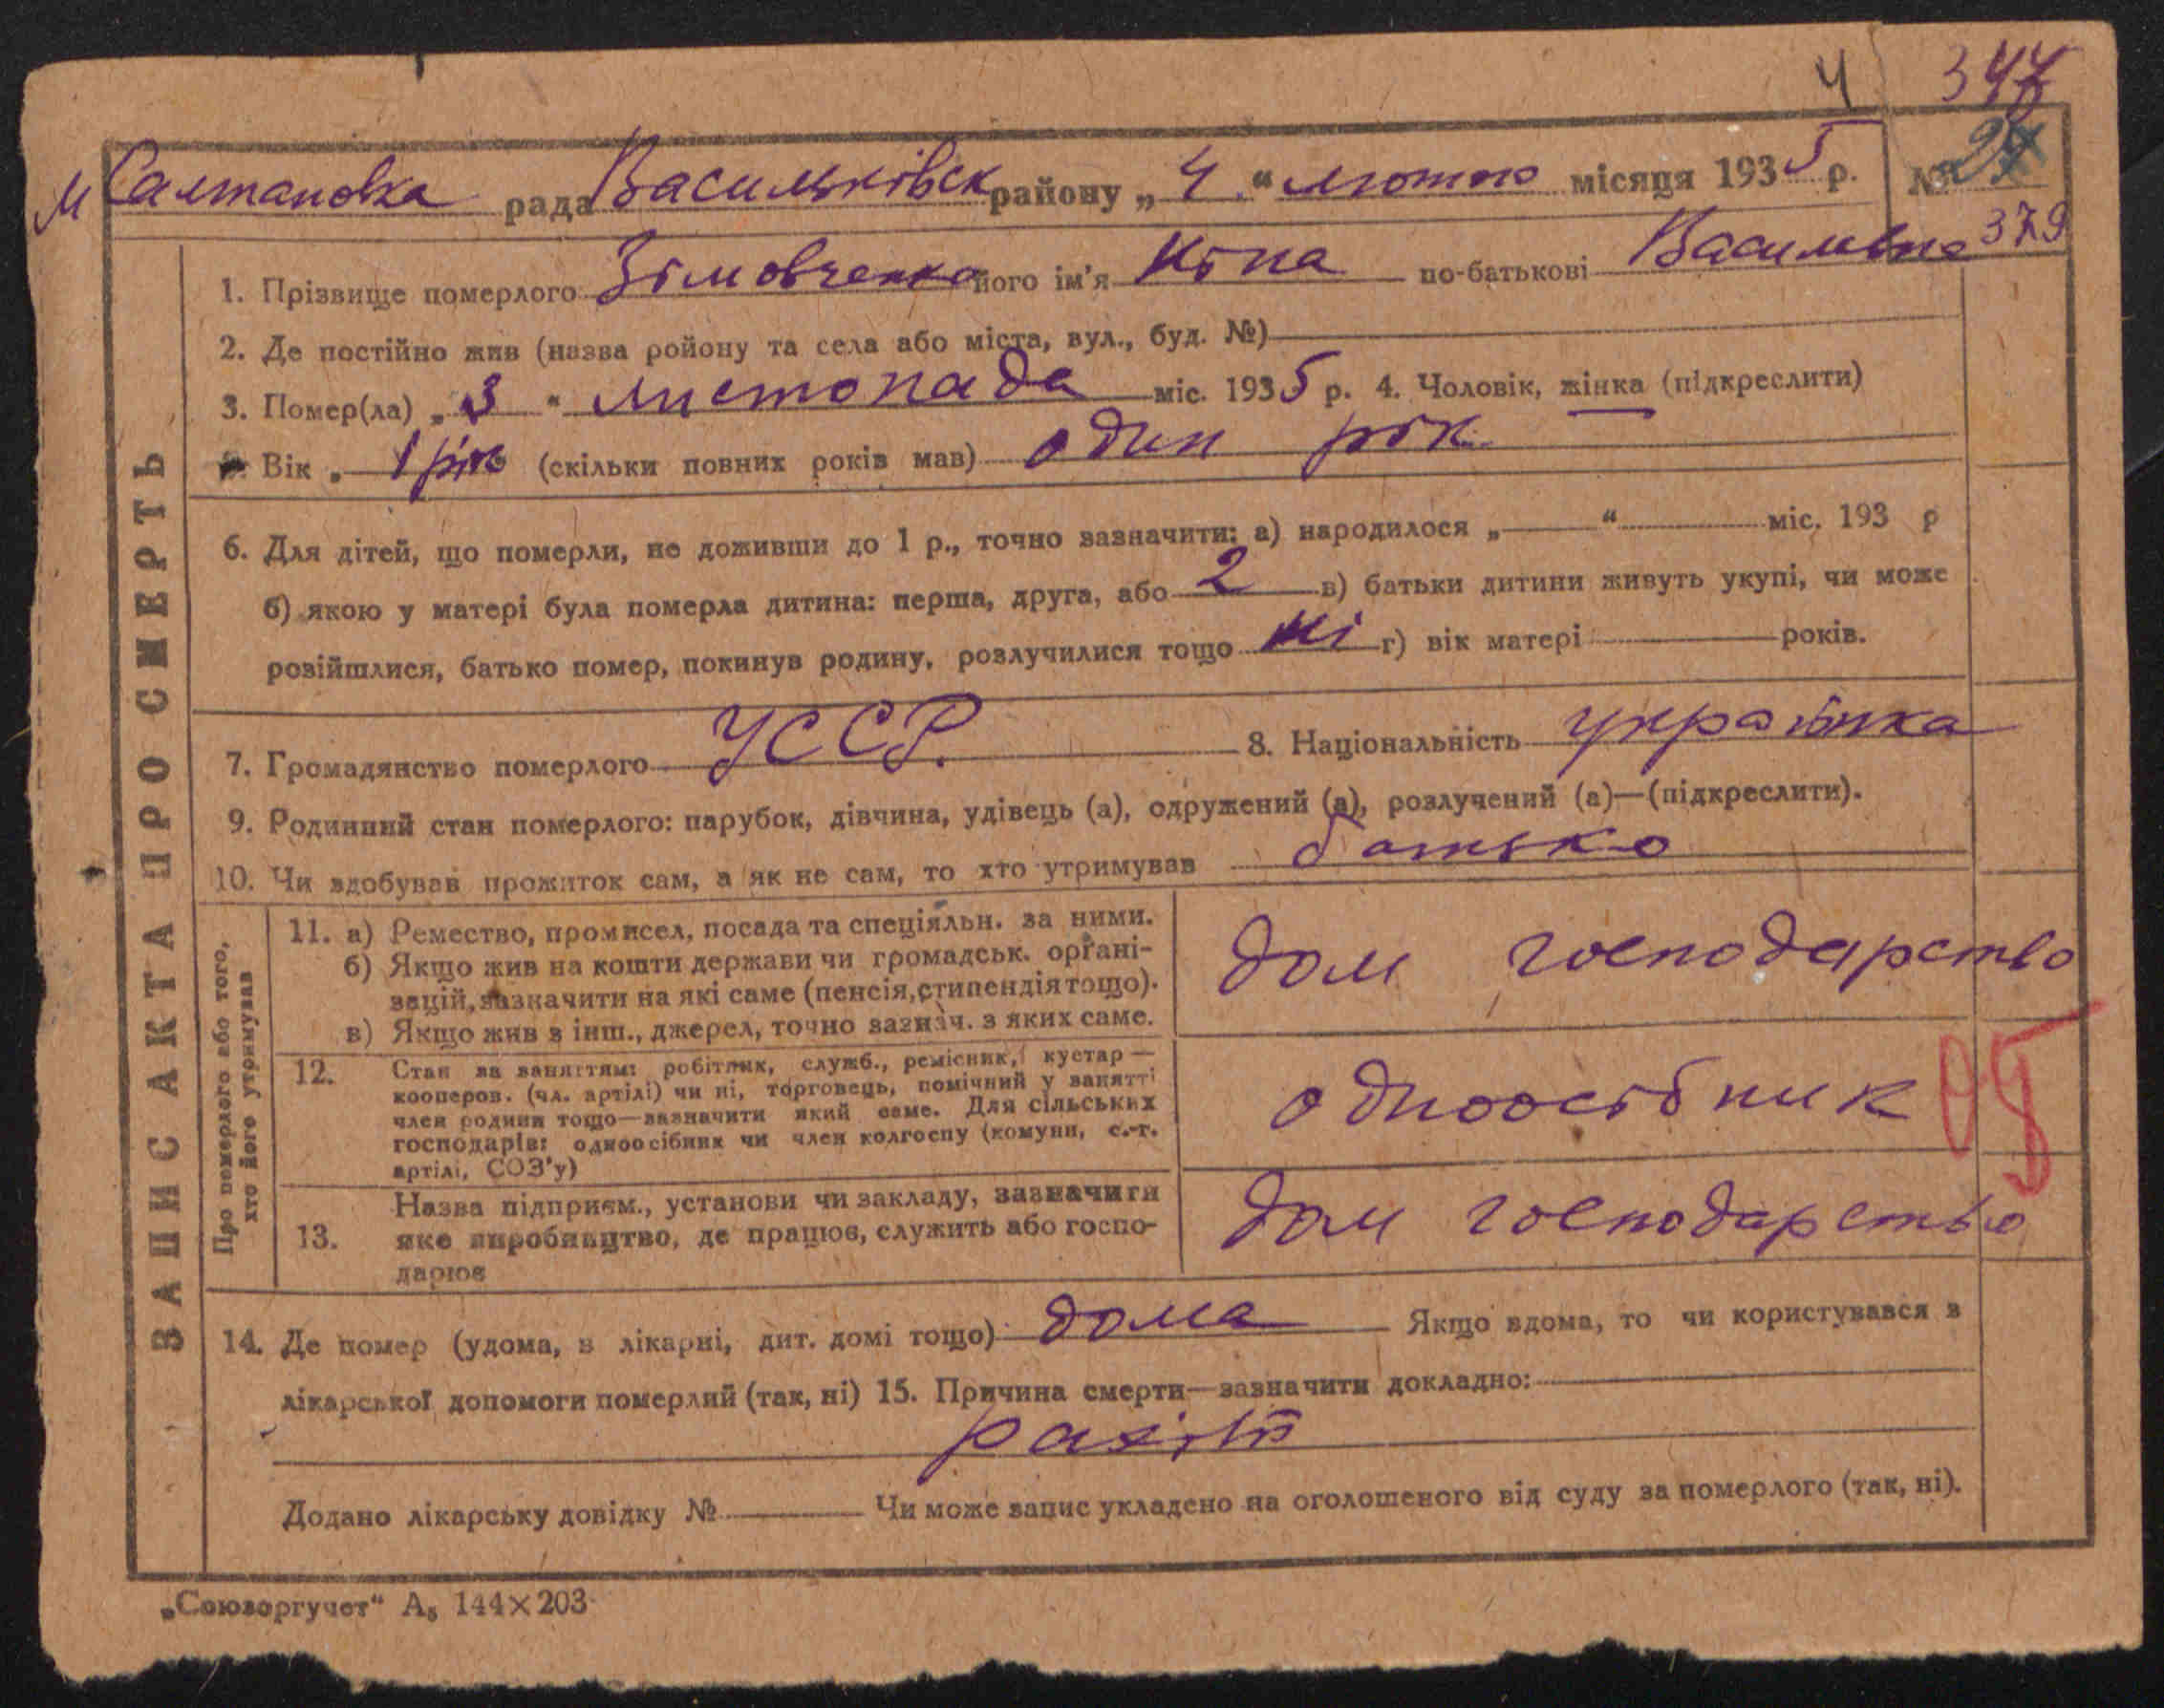 Ч 347
м Салтановка рада Васильківск району „ 4 “ лютого місяця 1935 р. № 24
379
1. Прізвище померлого Зімовченко його ім'я Ніна по-батькові Василівна
2. Де постійно жив (назва ройону та села або міста, вул., буд. №)
3. Помер(ла) „ 3 “ листопада міс. 1935 р. 4. Чоловік, жінка (підкреслити)
Вік „ 1 рік (скільки повних років мав) один рік
6. Для дітей, що померли, не доживши до 1 р., точно зазначити: а) народилося „ “ міс. 193 р
б) якою у матері була померла дитина: перша, друга, або 2 в) батьки дитини живуть укупі, чи може
розійшлися, батько помер, покинув родину, розлучилися тощо ні г) вік матері років.
7. Громадянство померлого УССР. 8. Національність українка
9. Родинний стан померлого: парубок, дівчина, удівець (а), одружений (а), розлучений (а)—(підкреслити).
10. Чи здобував прожиток сам, а як не сам, то хто утримував батько
ЗАПИС АКТА ПРО СМЕРТЬ
Про померлого або того,
хто його утримував
11. а) Ремество, промисел, посада та спеціяльн. за ними.
б) Якщо жив на кошти держави чи громадськ. органі-
зацій, зазначити на які саме (пенсія, стипендія тощо).
в) Якщо жив з інш., джерел, точно зазнач. з яких саме.
дом господарство
12. Стан за заняттям: робітник, служб., ремісник, кустар —
кооперов. (чл. артілі) чи ні, торговець, помічний у занятті
член родини тощо—зазначити який саме. Для сільських
господарів: одноосібник чи член колгоспу (комуни, с.-г.
артілі, СОЗ'у)
одноосібник
13. Назва підприєм., установи чи закладу, зазначити
яке виробництво, де працює, служить або госпо-
дарює
дом господарство
14. Де помер (удома, в лікарні, дит. домі тощо) дома Якщо вдома, то чи користувався в
лікарської допомоги померлий (так, ні) 15. Причина смерти—зазначити докладно:
рахіт
Додано лікарську довідку № Чи може запис укладено на оголошеного від суду за померлого (так, ні).
„Союзоргучет“ А₅ 144×203